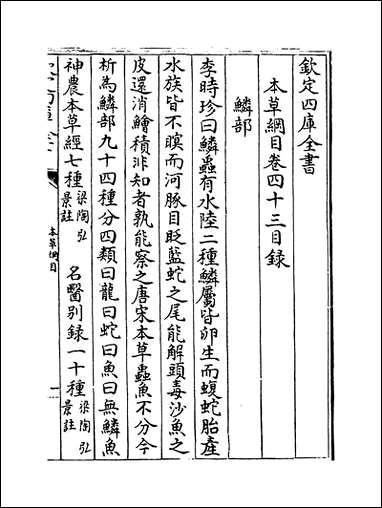 欽定四庫全書
本草綱目卷四十三目録
鱗部
李時珍曰鱗蟲有水陸二種鱗屬皆卵生而蝮蛇胎產
水族皆不瞑而河豚目眨藍蛇之尾能解頭毒沙魚之
皮還消鱠積非知者孰能察之唐宋本草蟲魚不分今
析為鱗部九十四種分四類曰龍曰蛇曰魚曰無鱗魚
神農本草經七種梁陶弘景註 名醫別録一十種梁陶弘景註
本草綱目
一